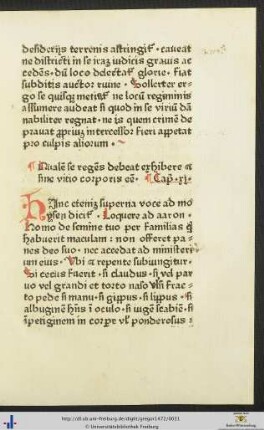 desiderijs terrenis astringit᷑ · caueat
ne districti in se iraz iudicis grauis ac
cedēs · dū loco delectat᷑ glorie · Fiat
subditis auctor ruine · Sollerter er-
go se quisq; metiat᷑ ne locū regiminis
assumere audeat si quod in se viciū dā
nabiliter regnat · ne is quem crimē de
prauat ꝓpriuz intercessor fieri appetat
pro culpis aliorum ·
Qualē se regēs debeat exhibere ⁊
sine vitio corporis eē · Cap · xi ·
HInc eteniz superna voce ad mo
ysen dicit᷑ · Loquere ad aaron ·
Homo de semine tuo per familias q̇
habuerit maculam : non offeret pa-
nes deo suo · nec accedat ad ministeri
um eius · Vbi ⁊ repente subiungitur ·
Si cecus fuerit · si claudus · si vel par
uo vel grandi et torto naso vl̓ si frac-
to pede si manu · si gippus · si lippus · si
albuginē hn̄s ī oculo · si iugē scabiē · si
īpetiginem in corpe vl̓ ponderosus :
http://dl.ub.uni-freiburg.de/diglit/gregor1472/0031
© Universitätsbibliothek Freiburg